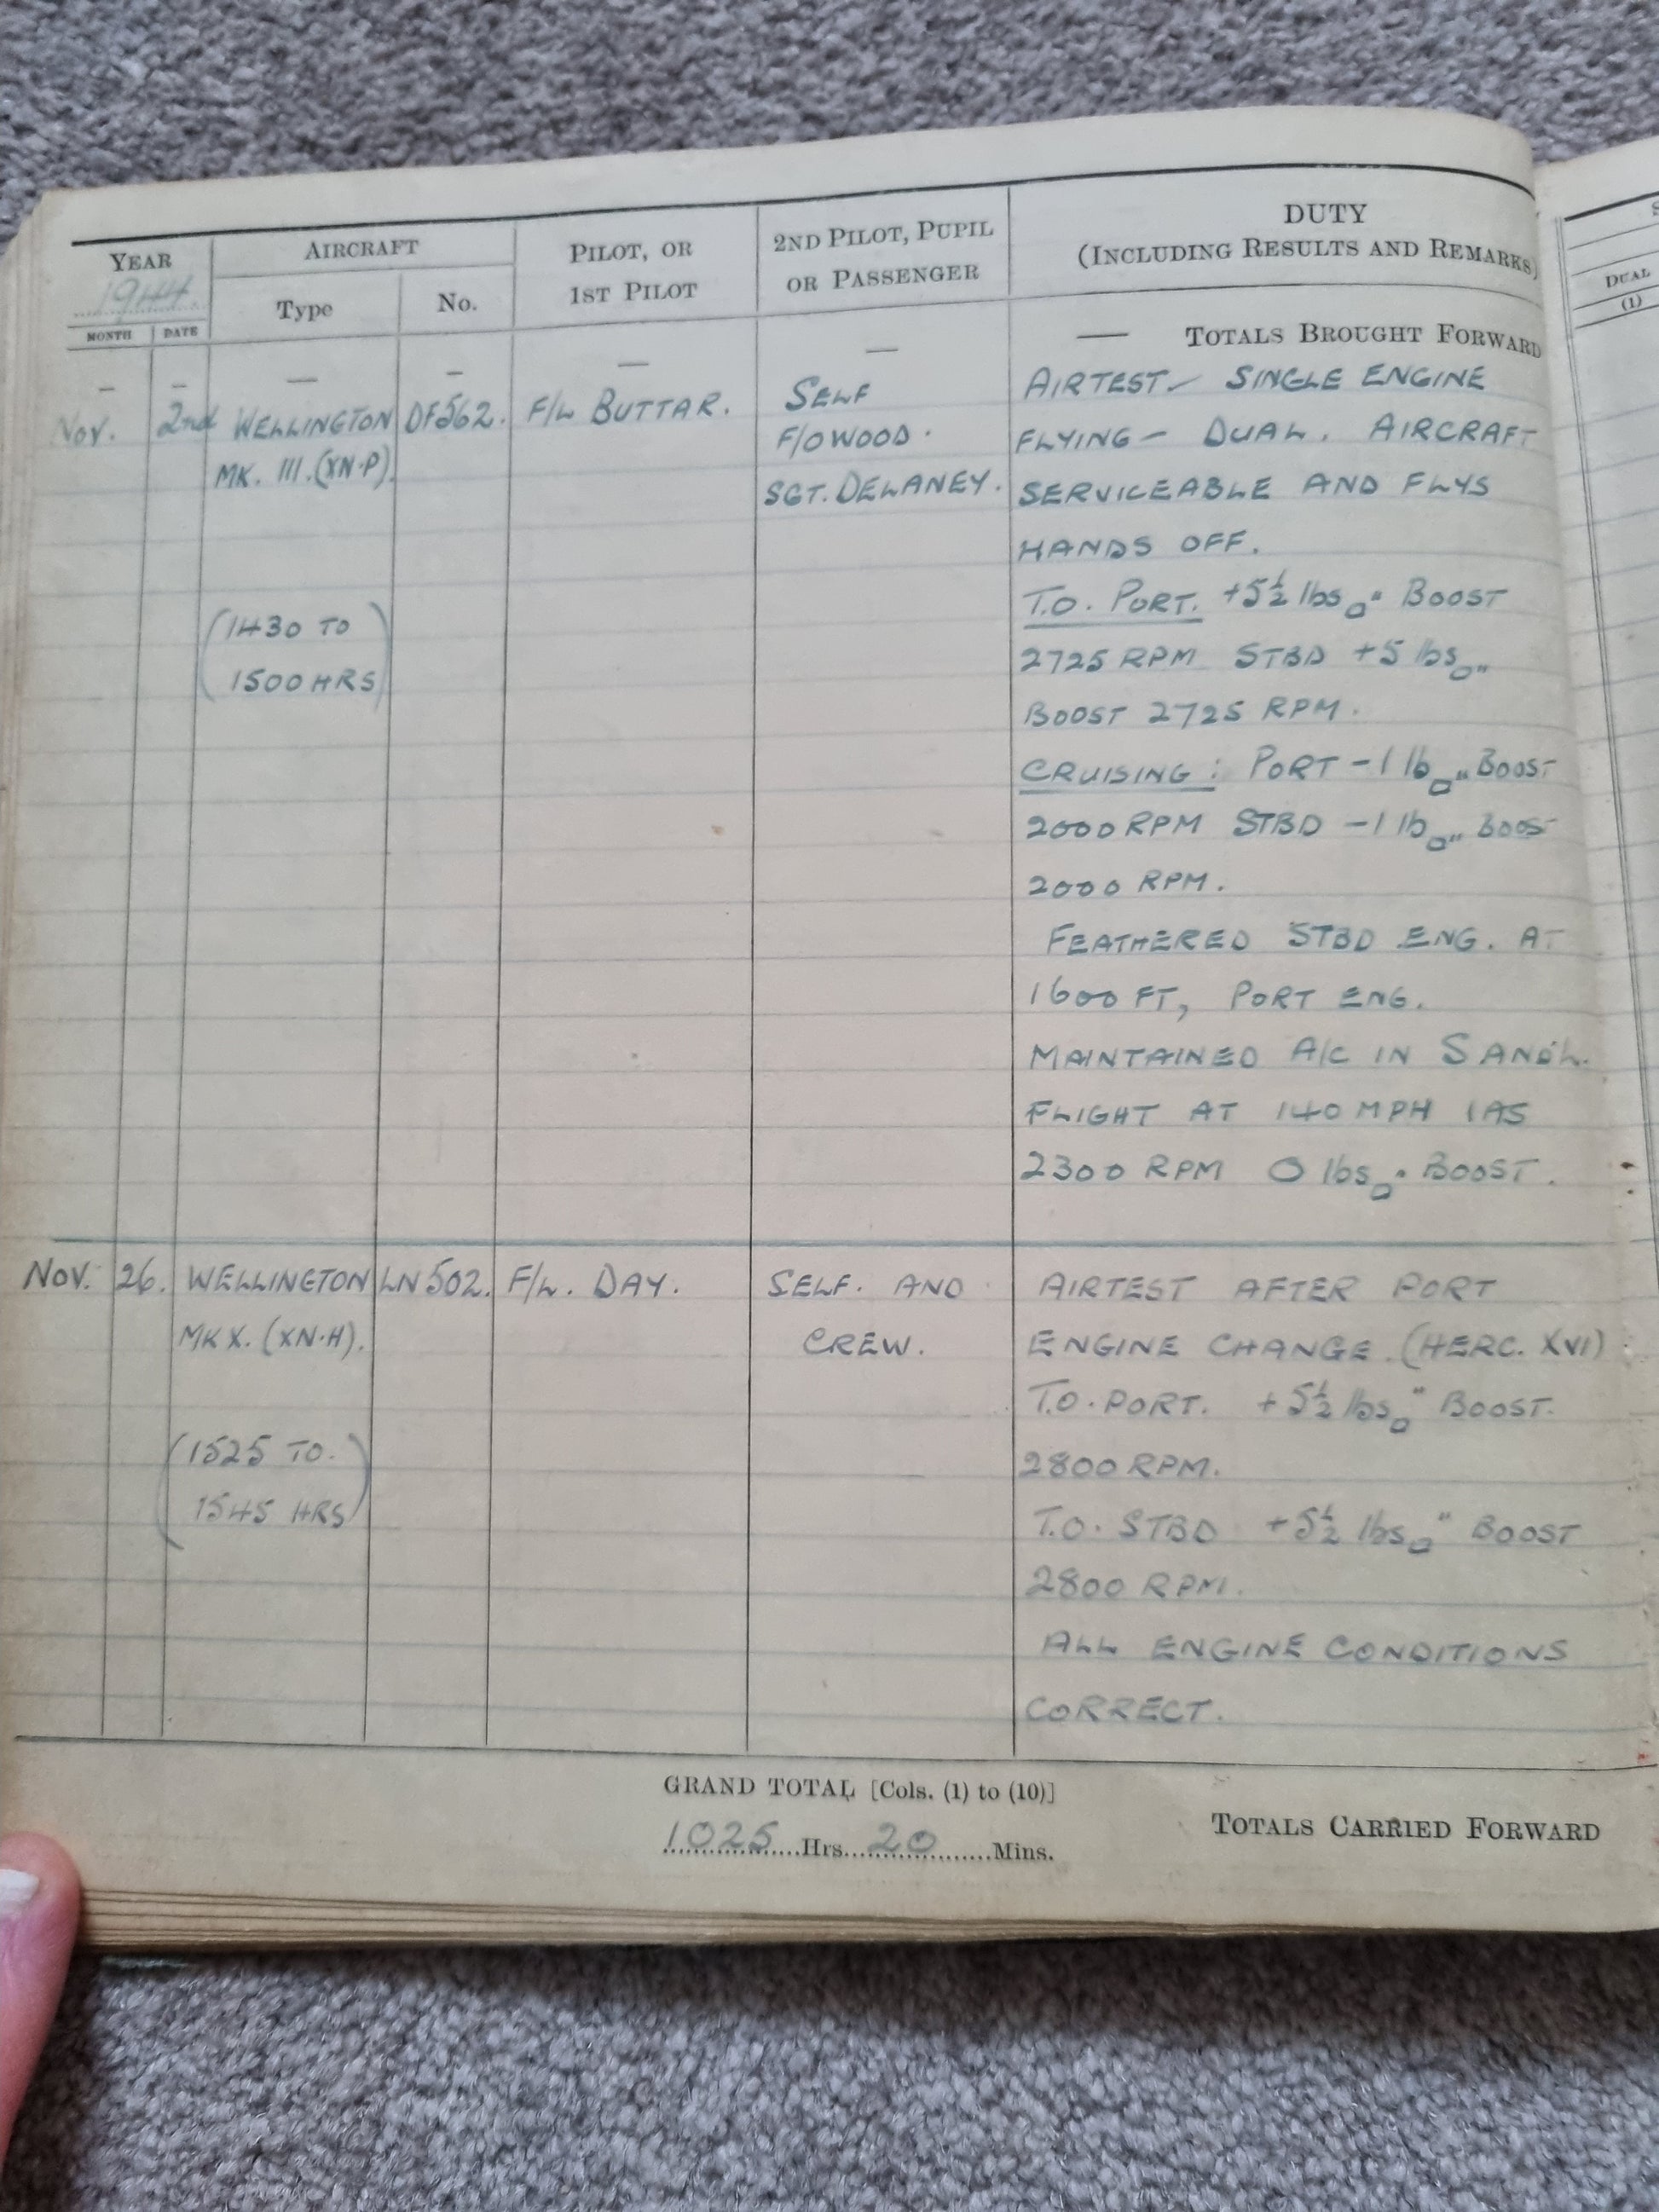 YEAR
1944
MONTH DATE
AIRCRAFT
Type No.
PILOT, OR
1ST PILOT
2ND PILOT, PUPIL
OR PASSENGER
DUTY
(INCLUDING RESULTS AND REMARKS)
DUAL
(1)
— — — — — — — TOTALS BROUGHT FORWARD
Nov. 2nd WELLINGTON DF562. F/L BUTTAR. SELF AIRTEST – SINGLE ENGINE
MK. III. (XN·P). F/O WOOD. FLYING – DUAL. AIRCRAFT
SGT. DELANEY. SERVICEABLE AND FLYS
HANDS OFF.
(1430 TO T.O. PORT. +5½ lbs □" BOOST
1500 HRS) 2725 RPM STBD +5 lbs □"
BOOST 2725 RPM.
CRUISING: PORT –1 lb □" BOOST
2000 RPM STBD –1 lb □" BOOST
2000 RPM.
FEATHERED STBD ENG. AT
1600 FT, PORT ENG.
MAINTAINED A/C IN S AND L.
FLIGHT AT 140 MPH IAS
2300 RPM 0 lbs □" BOOST.
Nov. 26. WELLINGTON LN502. F/L. DAY. SELF. AND AIRTEST AFTER PORT
MK X. (XN·H). CREW. ENGINE CHANGE. (HERC. XVI)
T.O. PORT. +5½ lbs □" BOOST.
(1525 TO. 2800 RPM.
1545 HRS) T.O. STBD +5½ lbs □" BOOST
2800 RPM.
ALL ENGINE CONDITIONS
CORRECT.
GRAND TOTAL [Cols. (1) to (10)]
1025 Hrs. 20 Mins.
TOTALS CARRIED FORWARD